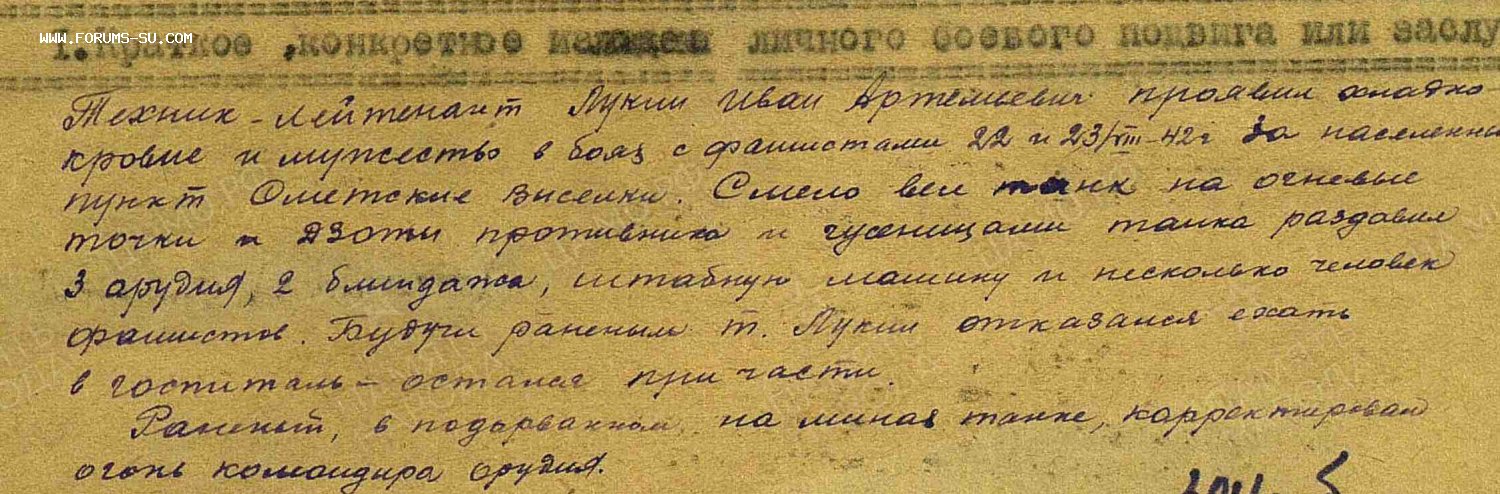 WWW.FORUMS-SU.COM
1. Краткое ,конкретное изложение личного боевого подвига или заслу
Техник - лейтенант Лукин Иван Артемьевич проявил хладно-
кровие и мужество в боях с фашистами 22 и 23/VIII-42г за населенны
пункт Ометские выселки. Смело вел танк на огневые
точки и ДЗОТы противника и гусеницами танка раздавил
3 орудия, 2 блиндажа, штабную машину и несколько человек
фашистов. Будучи раненым т. Лукин отказался ехать
в госпиталь - остался при части.
Раненый, в подорванном на минах танке, корректировал
огонь командира орудия.